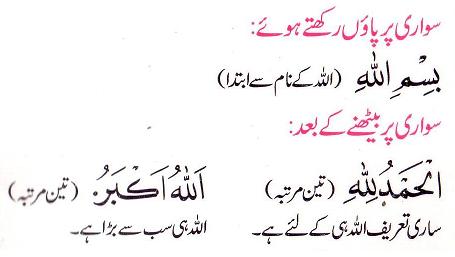 سواری پر پاؤں رکھتے ہوئے:
بِسْمِ اللهِ (اللہ کے نام سے ابتدا)
سواری پر بیٹھنے کے بعد:
اَلْحَمْدُ لِلّٰهِ (تین مرتبہ) اَللهُ اَكْبَرُ (تین مرتبہ)
ساری تعریف اللہ ہی کے لئے ہے۔ اللہ ہی سب سے بڑا ہے۔